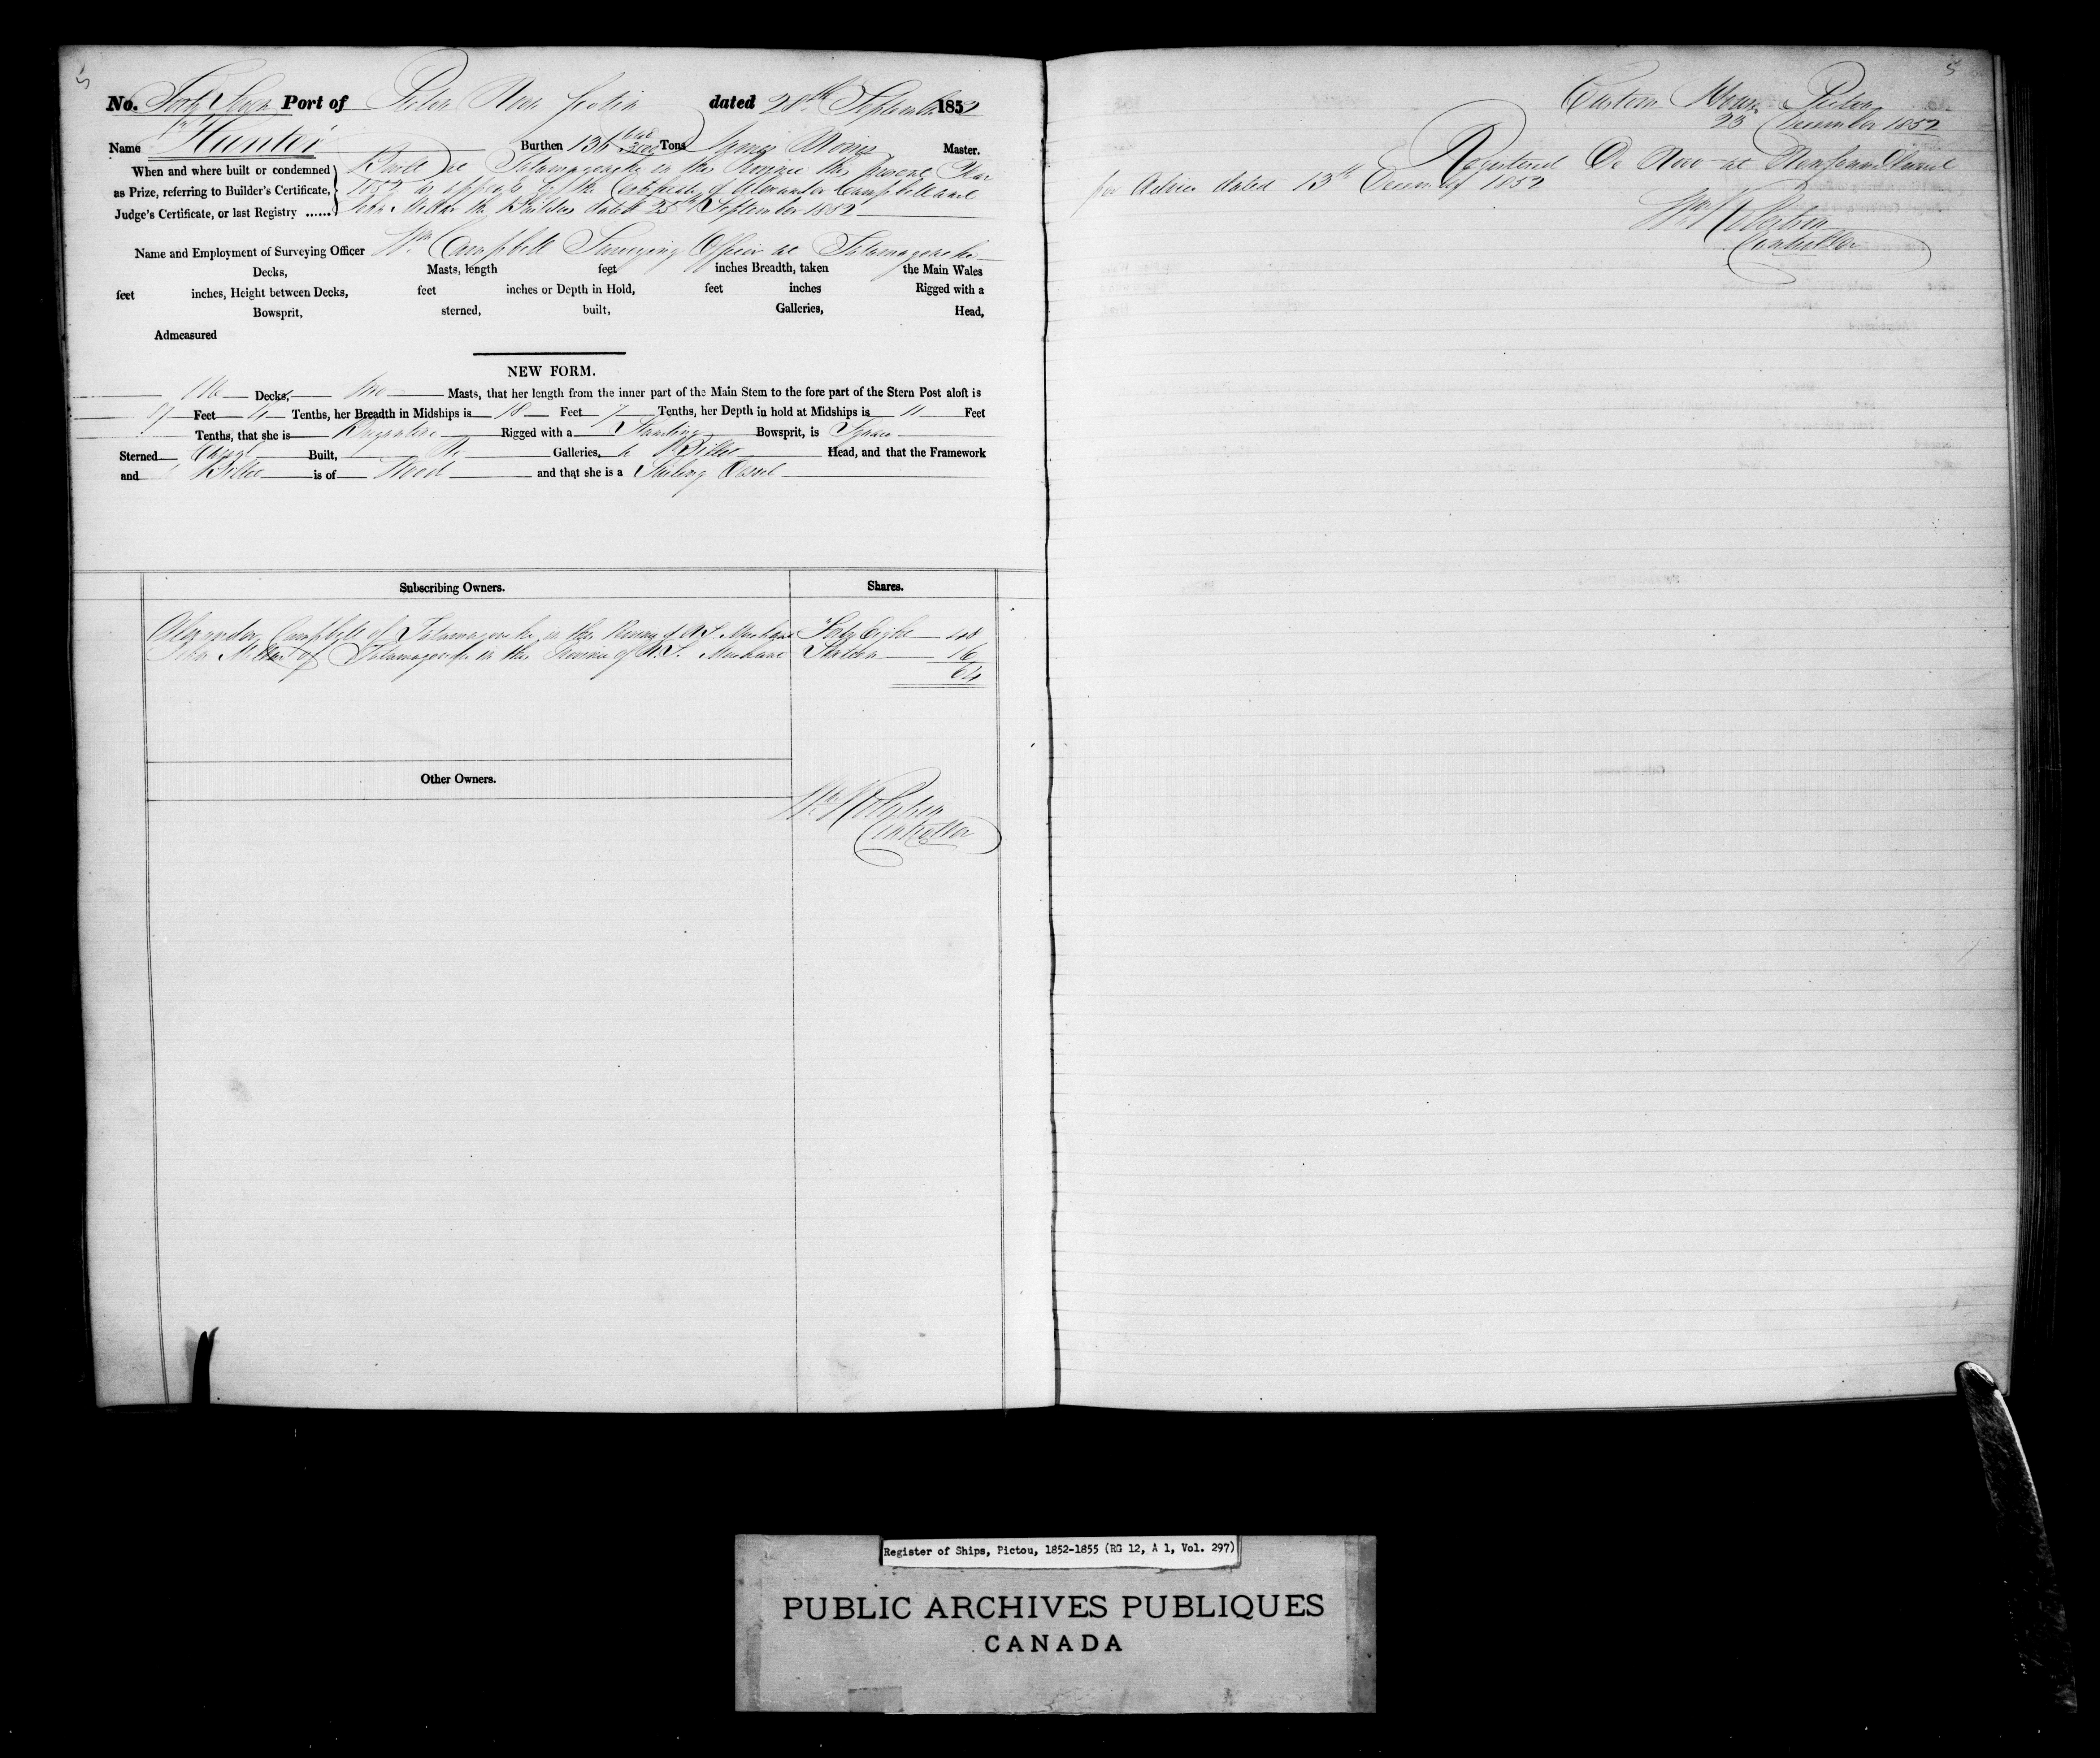 5
No. Forty Seven Port of Pictou Nova Scotia dated 28th September 1852
Name Hunter Burthen 136 Tons James Master.
When and where built or condemned
as Prize, referring to Builder's Certificate,
Judge's Certificate, or last Registry ......
Built at Tatamagouche in the Province this present Year
1852 as appears by the Certificate of Alexander Campbell and
John Millar the Builders dated 25th September 1852
Name and Employment of Surveying Officer Wm Campbell Surveying Officer at Tatamagouche
Decks, Masts, length feet inches Breadth, taken the Main Wales
feet inches, Height between Decks, feet inches or Depth in Hold, feet inches Rigged with a
Bowsprit, sterned, built, Galleries, Head,
Admeasured
NEW FORM.
Decks, two Masts, that her length from the inner part of the Main Stem to the fore part of the Stern Post aloft is
Feet Tenths, her Breadth in Midships is 18 Feet 7 Tenths, her Depth in hold at Midships is 11 Feet
Tenths, that she is Brigantine Rigged with a Standing Bowsprit, is Square
Sterned Carvel Built, No Galleries, & Billet Head, and that the Framework
and is of Wood and that she is a Sailing Vessel
Subscribing Owners. Shares.
Alexander Campbell of Tatamagouche in the Province of N.S. Merchant Forty Eight 48
John Millar of Tatamagouche in the Province of N.S. Merchant Sixteen 16
64
Other Owners.
Wm Robertson
Controller
5
Custom House Pictou
23 December 1852
Registered De Novo at Newfoundland
per Advice dated 13th December 1852
Wm Robertson
Controller
Register of Ships, Pictou, 1852-1855 (RG 12, A 1, Vol. 297)
PUBLIC ARCHIVES PUBLIQUES
CANADA